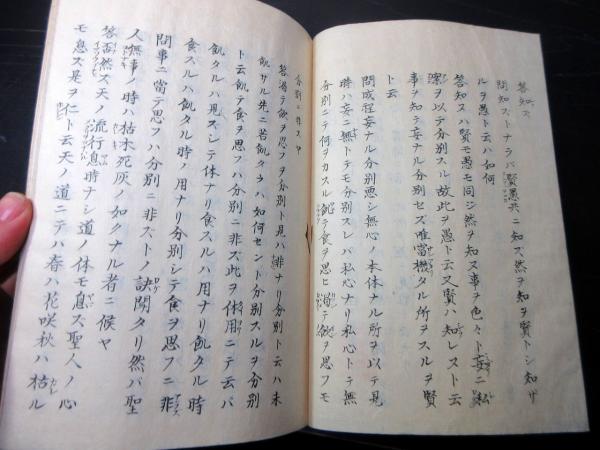 答知ス
問知ストナラバ賢愚共ニ知ズ然ヲ知ヲ賢トシ知ザ
ルヲ愚ト云ハ如何
答知スハ賢モ愚モ同シ然ヲ知ヌ事ヲ色々ト妄ニ私
ヲ以テ分別スル故此ヲ愚ト云又賢ハ知レスト云
事ヲ知テ妄ナル分別セズ唯當機タル所ヲスルヲ賢
ト云
問成程妄ナル分別悪シ無心ノ本体ナル所ヲ以テ見
時ハ妄ニ無トテモ分別スレバ私心ナリ私心トテ無
分別ニテ何ヲカスル飢テ食ヲ思ヒ渇テ飲ヲ思フモ
分別ニ非スヤ
答渇テ飲ヲ思フヲ分別ト見ハ非ナリ分別ト云ハ未
飢サル先ニ若飢タラハ如何セント分別スルヲ分別
ト云飢テ食ヲ思フハ分別ニ非ズ此ヲ体用ニテ云バ
飢タルハ見スシテ体ナリ食スルハ用ナリ飢タル時
食スルハ飢タル時ノ用ナリ分別シテ食ヲ思フニ非
問事ニ當テ思フハ分別ニ非ストノ訣聞タリ然バ聖
人無事ノ時ハ枯木死灰ノ如クナル者ニ候ヤ
答否然ズ天ノ流行息時ナシ道ノ体モ息ズ聖人ノ心
モ息ズ是ヲ仁ト云天ノ道ニテハ春ハ花咲秋ハ枯ル